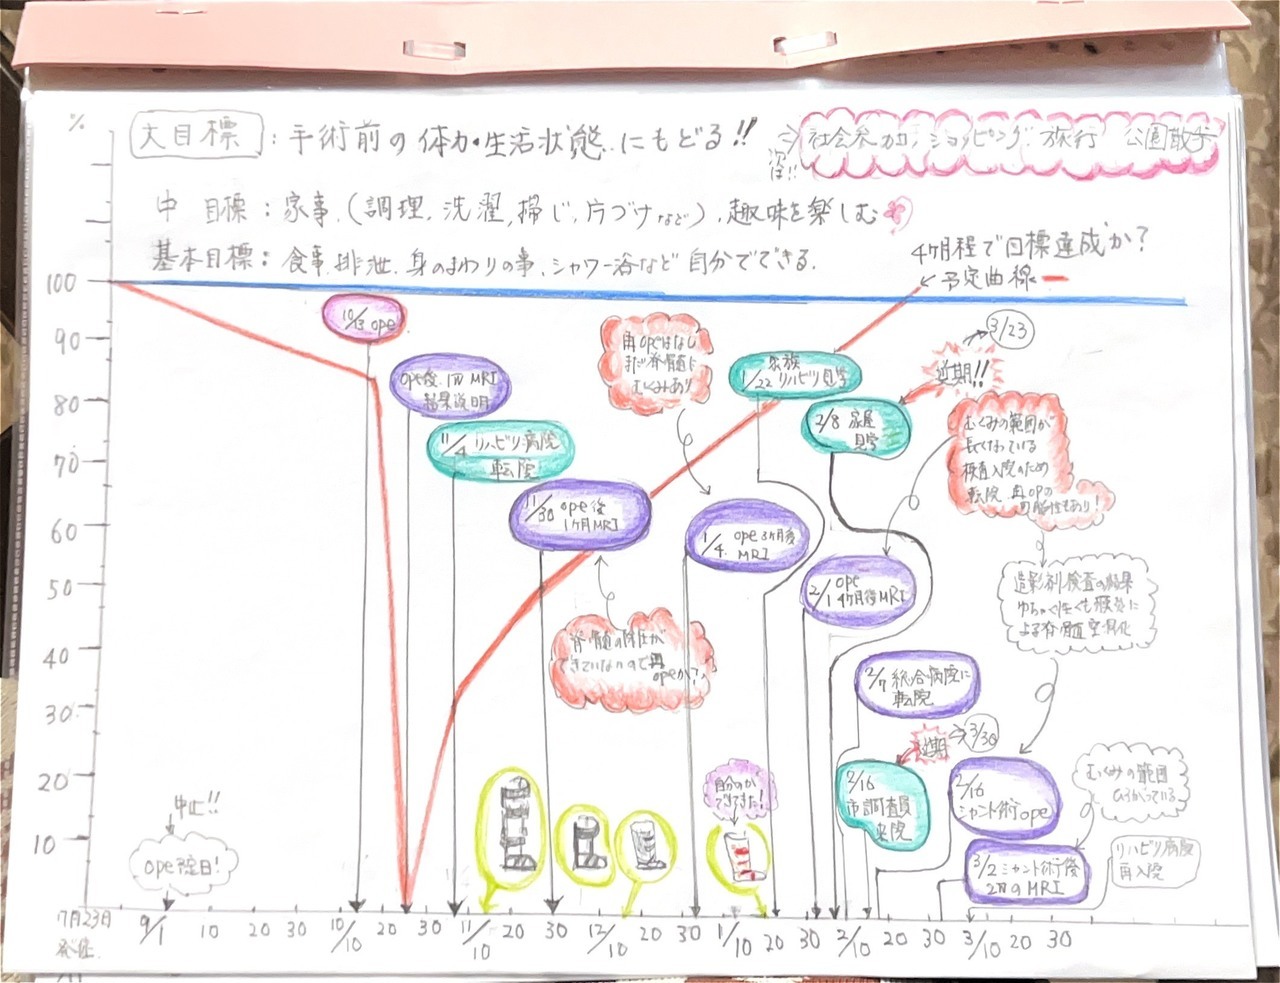 %
大目標:手術前の体力・生活状態にもどる!!
次は!!
社会参加,ショッピング.旅行 公園散歩
中 目標:家事.(調理,洗濯,掃じ,片づけなど),趣味を楽しむ
基本目標:食事.排泄.身のまわりの事、シャワー浴など 自分でできる.
4ヶ月程で目標達成か?
予定曲線
100
90
80
70
60
50
40
30
20
10
10/13 ope
ope後.1W MRI
結果説明
11/4 リハビリ病院
転院
11/30 ope後
1ヶ月MRI
再opeはなし
まだ脊髄に
むくみあり
家族
1/22 リハビリ見学
2/8 家屋
見学
延期!!
3/23
むくみの範囲が
長くなっている
検査入院のため
転院.再opの
可能性もあり!
1/4. ope3ヶ月後
MRI
2/1 ope
4ヶ月後MRI
造影剤検査の結果
ゆちゃくせくも膜炎に
よる脊髄空洞化
脊髄の除圧が
できていないので再
opeか?
2/7 総合病院に
転院
延期
3/30
2/16
市調査員
来院
2/16
シャント術ope
むくみの範囲
ひろがっている
3/2 シャント術後
2日のMRI
リハビリ病院
再入院
自分のが
できてきた!
中止!!
ope予定日!
7月23日
発症.
9/1 10 20 30 10/10 20 30 11/10 20 30 12/10 20 30 1/10 20 30 2/10 20 30 3/10 20 30